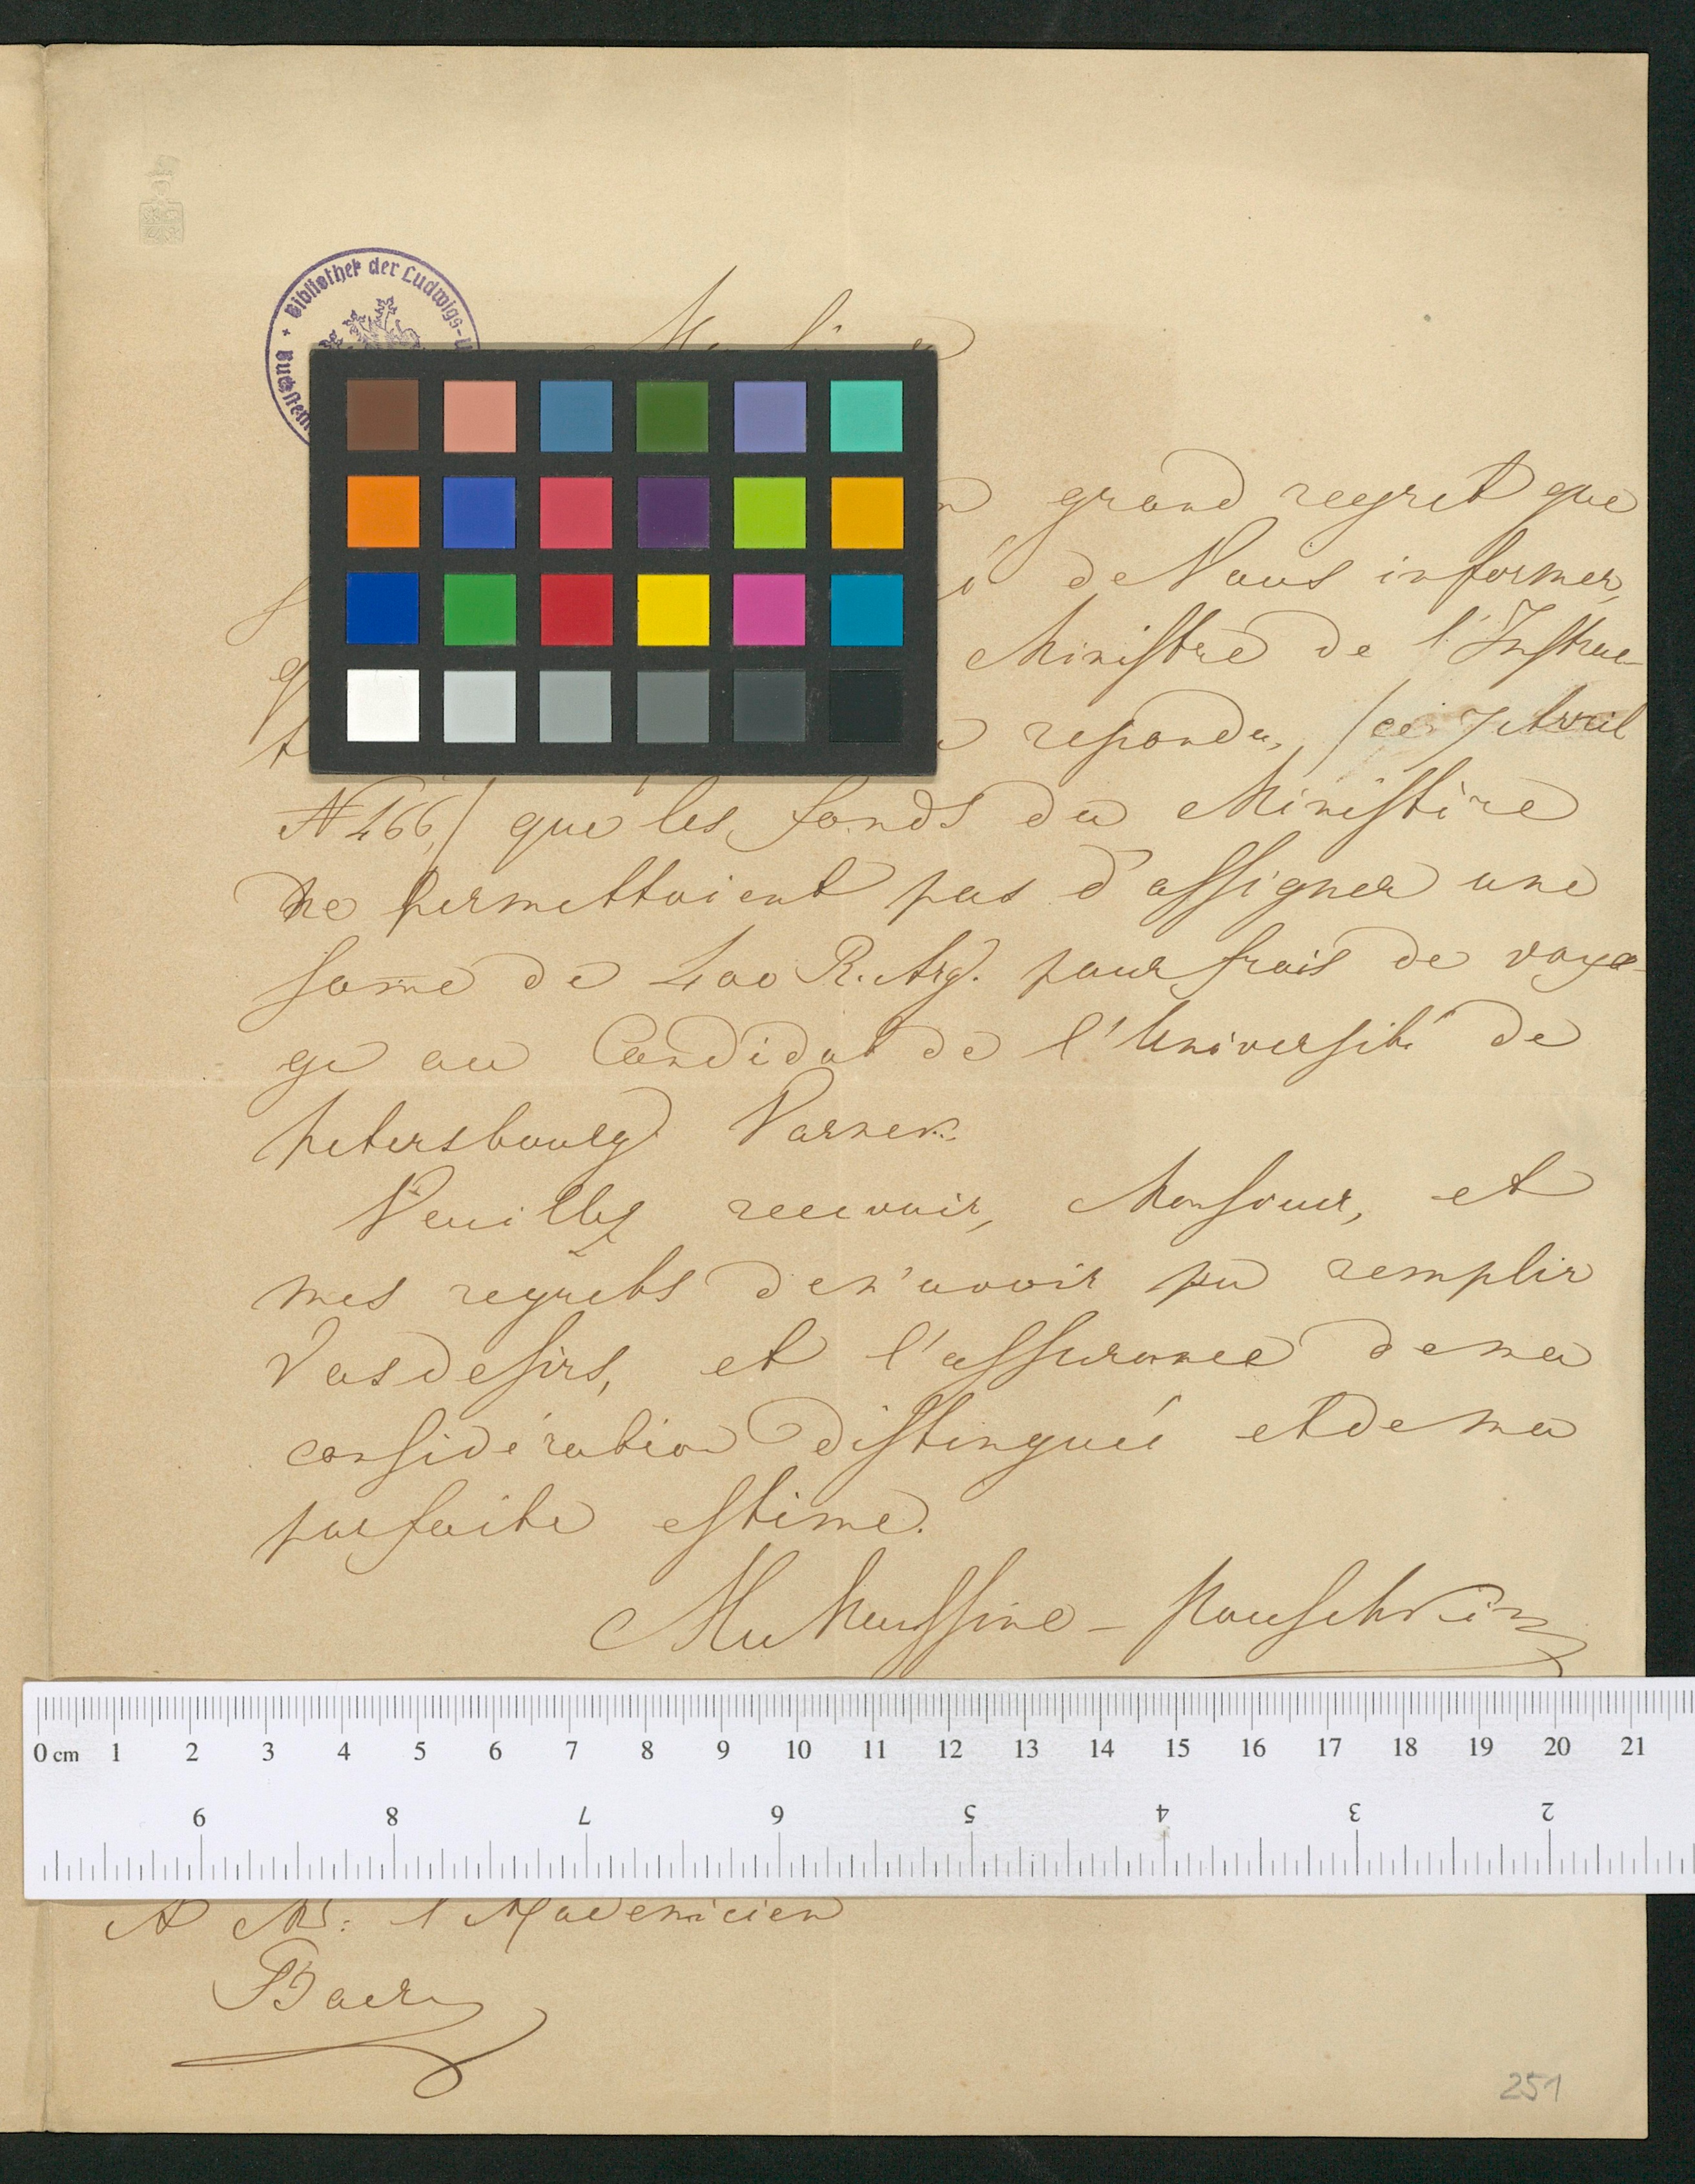 Bibliothek der Ludwigs-U
grand regret que
de Vous informer,
Ministre de l'Instruc-
repondu, /ce 7 Avril
N 466,/ que les fonds du Ministère
ne permettoient pas d'assigner une
some de 400 R. Arg. pour frais de voya-
ge au Candidat de l'Université de
Petersbourg Varnek.
Veuillez recevoir, Monsieur, et
mes regrets de n'avoir pu remplir
Vos desirs, et l'assurance de ma
considération distinguée et de ma
parfaite estime.
Mu Moussine-Pouschkin
0 cm 1 2 3 4 5 6 7 8 9 10 11 12 13 14 15 16 17 18 19 20 21
9 8 7 6 5 4 3 2
A Mr: l'Académicien
Baer
251